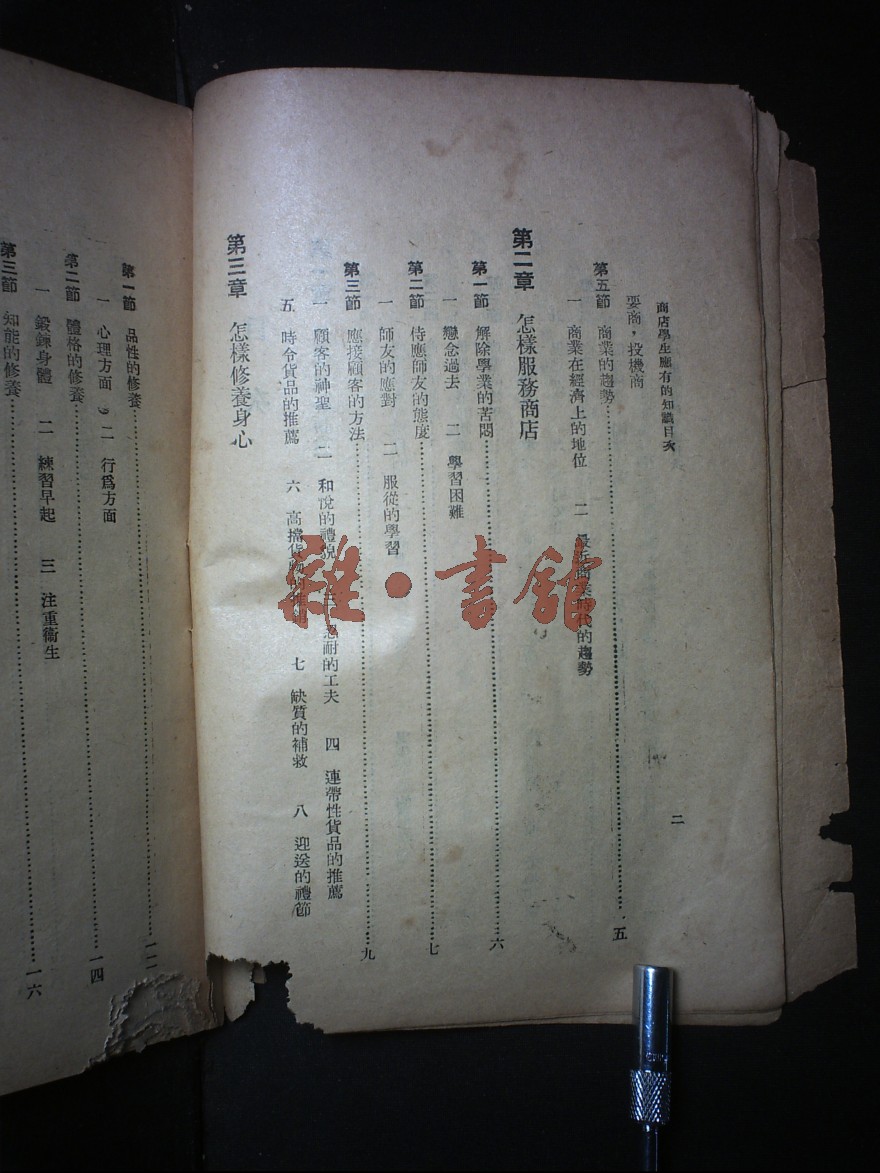 商店學生應有的知識目次
二
要商，投機商
第五節 商業的趨勢 五
一 商業在經濟上的地位 二 最近商業時代的趨勢
第二章 怎樣服務商店
第一節 解除學業的苦悶 六
一 戀念過去 二 學習困難
第二節 侍應師友的態度 七
一 師友的應對 二 服從的學習
第三節 應接顧客的方法 九
一 顧客的神聖 二 和悅的禮貌 三 忍耐的工夫 四 連帶性貨品的推薦
五 時令貨品的推薦 六 高擋貨 七 缺質的補救 八 迎送的禮節
第三章 怎樣修養身心
第一節 品性的修養 一二
一 心理方面 二 行爲方面
第二節 體格的修養 一四
一 鍛鍊身體 二 練習早起 三 注重衞生
第三節 知能的修養 一六
雜·書舘